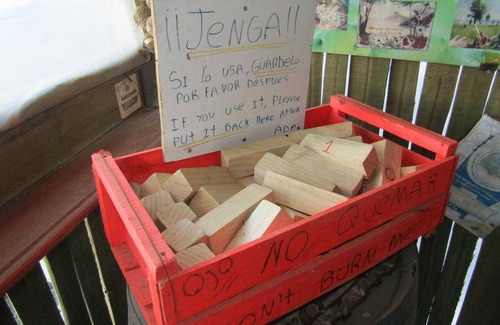 ¡¡JENGA!!
SI lo USA, GUARDELO
POR FAVOR DESPUES
IF YOU USE IT, PLEASE
PUT IT BACK HERE AFTER
1
OJO NO QUEMAR
DON'T BURN ME